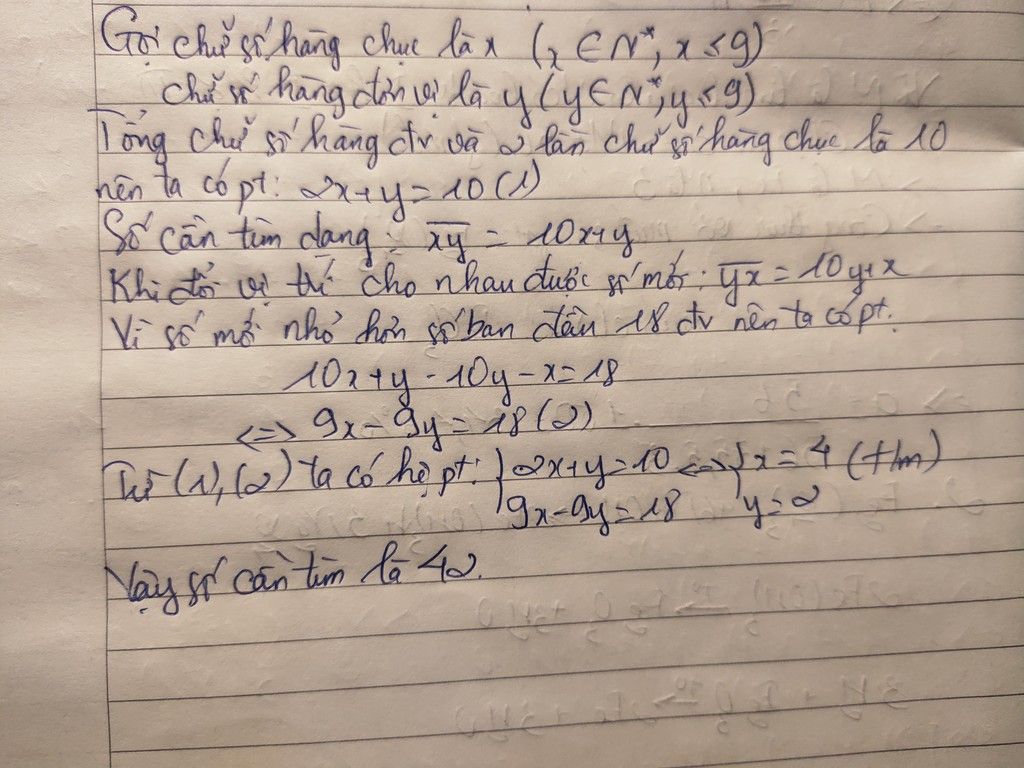 Gọi chữ số hàng chục là x (x ∈ N*, x ≤ 9)
chữ số hàng đơn vị là y (y ∈ N*, y ≤ 9)
Tổng chữ số hàng đv và 2 lần chữ số hàng chục là 10
nên ta có pt: 2x+y=10 (1)
Số cần tìm dạng: xy̅ = 10x+y
Khi đổi vị trí cho nhau được số mới: yx̅ = 10y+x
Vì số mới nhỏ hơn số ban đầu 18 đv nên ta có pt:
10x+y-10y-x=18
<=> 9x-9y=18 (2)
Từ (1), (2) ta có hệ pt: { 2x+y=10 <=> { x=4 (t/m)
9x-9y=18 y=2
Vậy số cần tìm là 42.